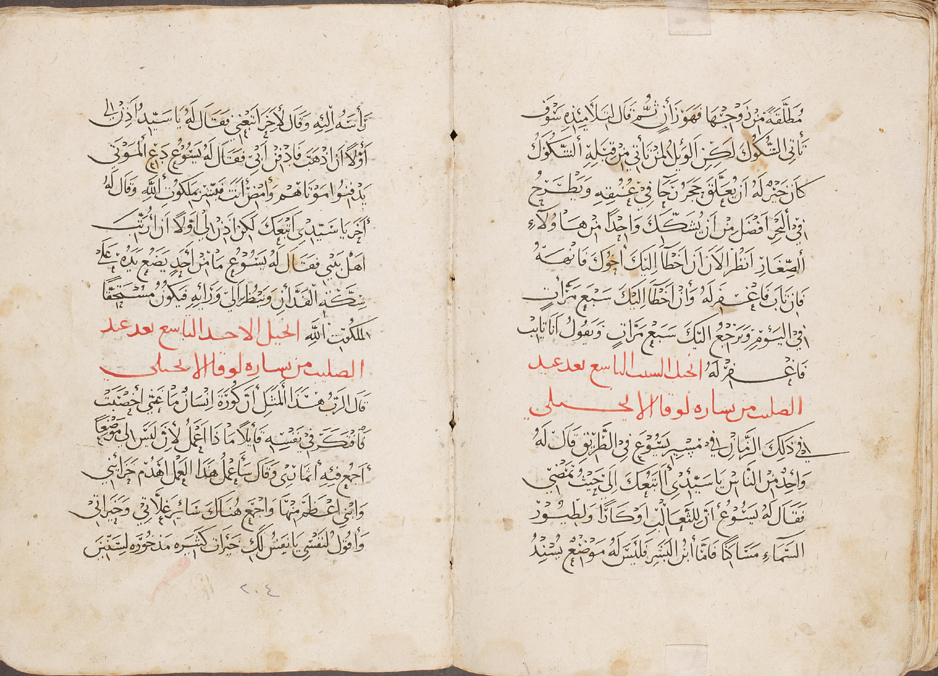 مطلقة من زوجها فهو زانٍ ثم قال لتلاميذه سوف
تأتي الشكوك لكن الويل لمن يأتي من قبله الشكوك
كان خير له ان يعلق حجر رحا في عنقه ويطرح
في البحر افضل من ان يشكك واحدا من هاولاء
الصغار انظر الان ان اخطا اليك اخوك فانهه
فان تاب فاغفر له وان اخطا اليك سبع مرات
في اليوم ويرجع اليك سبع مرات ويقول انا تايب
فاغفر له انجيل السبت التاسع بعد عيد
الصليب من بشاره لوقا الانجيلي
في ذلك الزمان في مسير يسوع في الطريق قال له
واحد من الناس يا سيدي أاتبعك الى حيث تمضي
فقال له يسوع ان للثعالب اوكارا ولطيور
السماء مساكنا فاما ابن البشر فليس له موضع يسند
رأسه اليه وقال لأخر اتبعني فقال له يا سيد أذن لي
أولا ان اذهب فادفن ابي فقال له يسوع دع الموتى
يدفنوا موتاهم وامض أنت فبشر بملكوت الله وقال له
أخر يا سيدي اتبعك لكن اذن لي اولا ان ارتب
اهل بيتي فقال له يسوع ما من أحد يضع يده على
سكة الفدان وينظر الي ورائه فيكون مستحقا
لملكوت الله انجيل الاحد التاسع بعد عيد
الصليب من بشاره لوقا الانجيلي
قال الرب هذا المثل أن كورة انسان ما غني أخصبت
فافتكر في نفسه قايلا ماذا اعمل لأن ليس لي موضعا
أجمع فيه أثماري وقال سأعمل هذا العمل أهدم خزايني
وابني اعظم منها واجمع هناك سائر غلاتي وخيراتي
وأقول لنفسي يا نفس لك خيرات كثيره مذخوره لسنين
٢٠٤